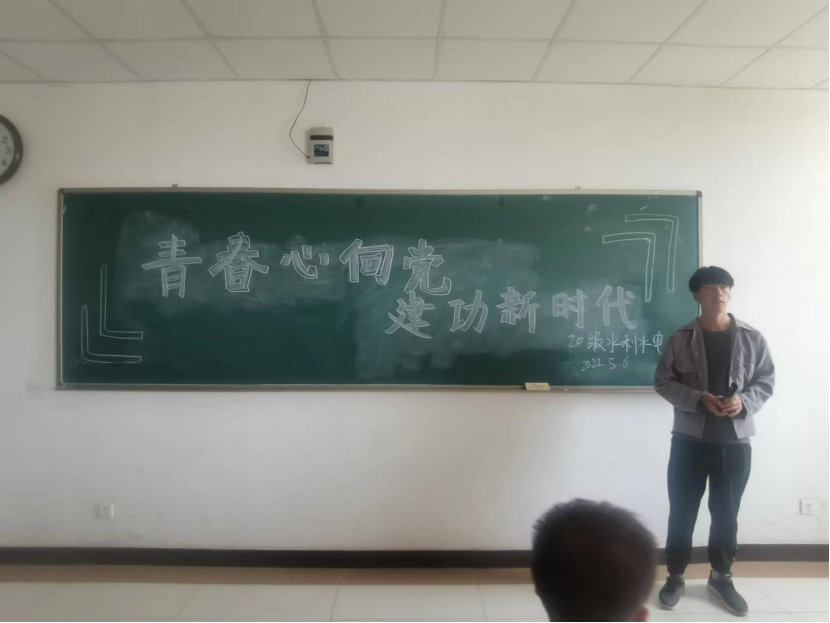 青春心向党
建功新时代
20级水利水电
2022.5.6
2
3
4